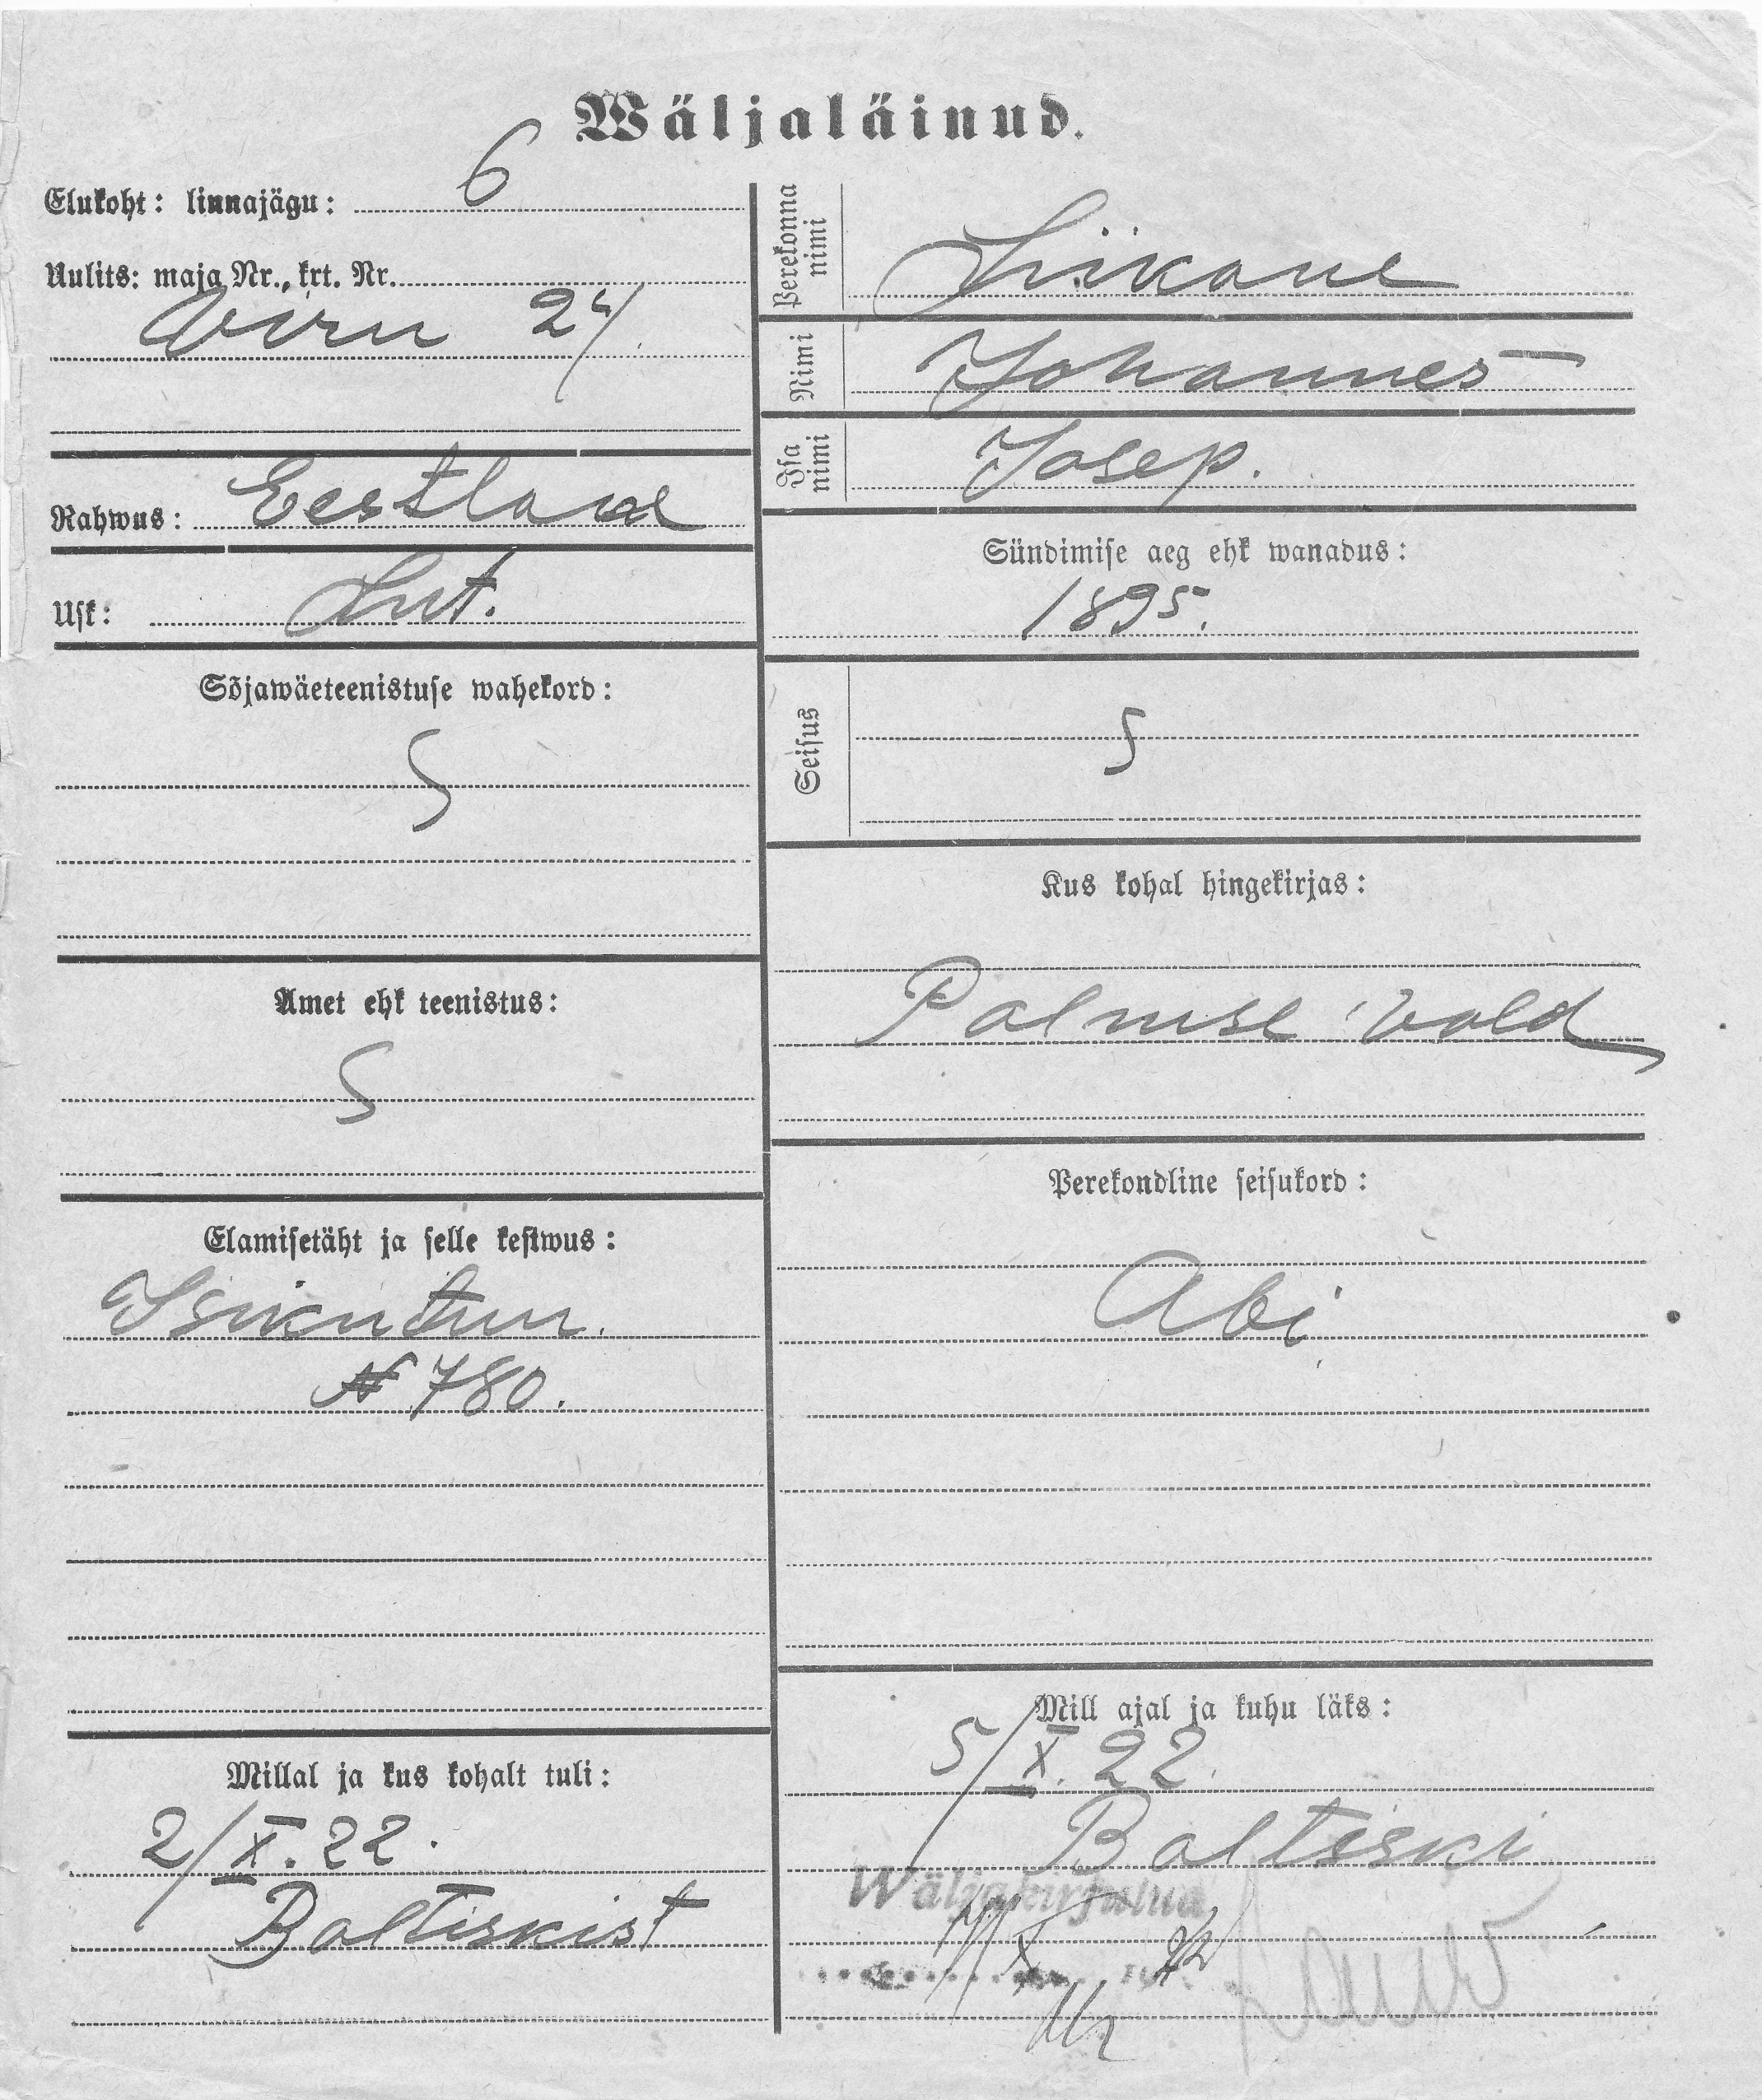 Wäljaläinud.
Elukoht: linnajägu: 6
Uulits: maja Nr., krt. Nr.
Viru 24
Rahwus: Eestlane
Usk: Lut.
Sõjawäeteenistuse wahekord:
Amet ehk teenistus:
Elamisetäht ja selle kestwus:
Isikutun.
№ 780.
Millal ja kus kohalt tuli:
2/X. 22.
Baltiskist
Perekonna nimi Liikane
Nimi Johannes
Isa nimi Josep.
Sündimise aeg ehk wanadus:
1895.
Seisus
Kus kohal hingekirjas:
Palmse vald
Perekondline seisukord:
Abi
Mill ajal ja kuhu läks:
5/X. 22.
Baltiski
Wäljakirjutud
X 22